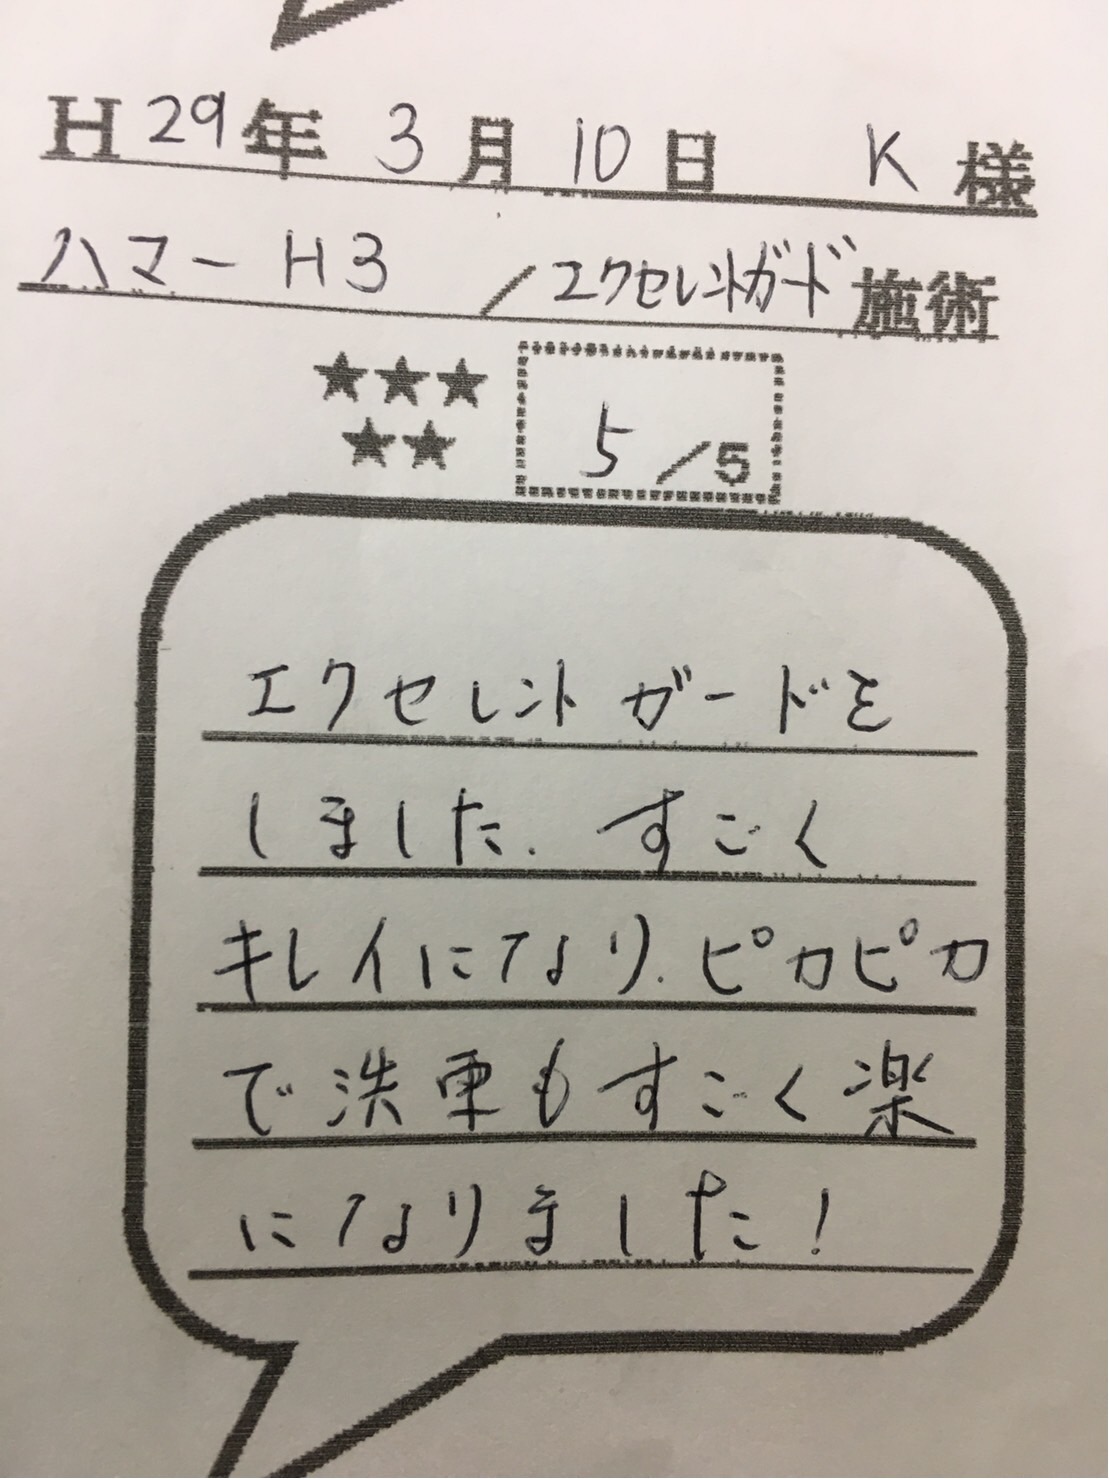 H29年 3月10日 K様
ハマーH3 /エクセレントガード施術
★★★
★★
5/5
エクセレントガードを
しました. すごく
キレイになり. ピカピカ
で洗車もすごく楽
になりました!